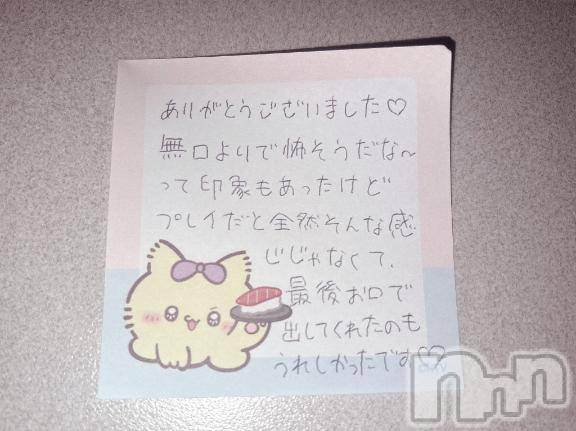 ありがとうございました♡
無口よりで怖そうだな〜
って印象もあったけど
プレイだと全然そんな感
じじゃなくて、
最後お口で
出してくれたのも
うれしかったです♡
nnn